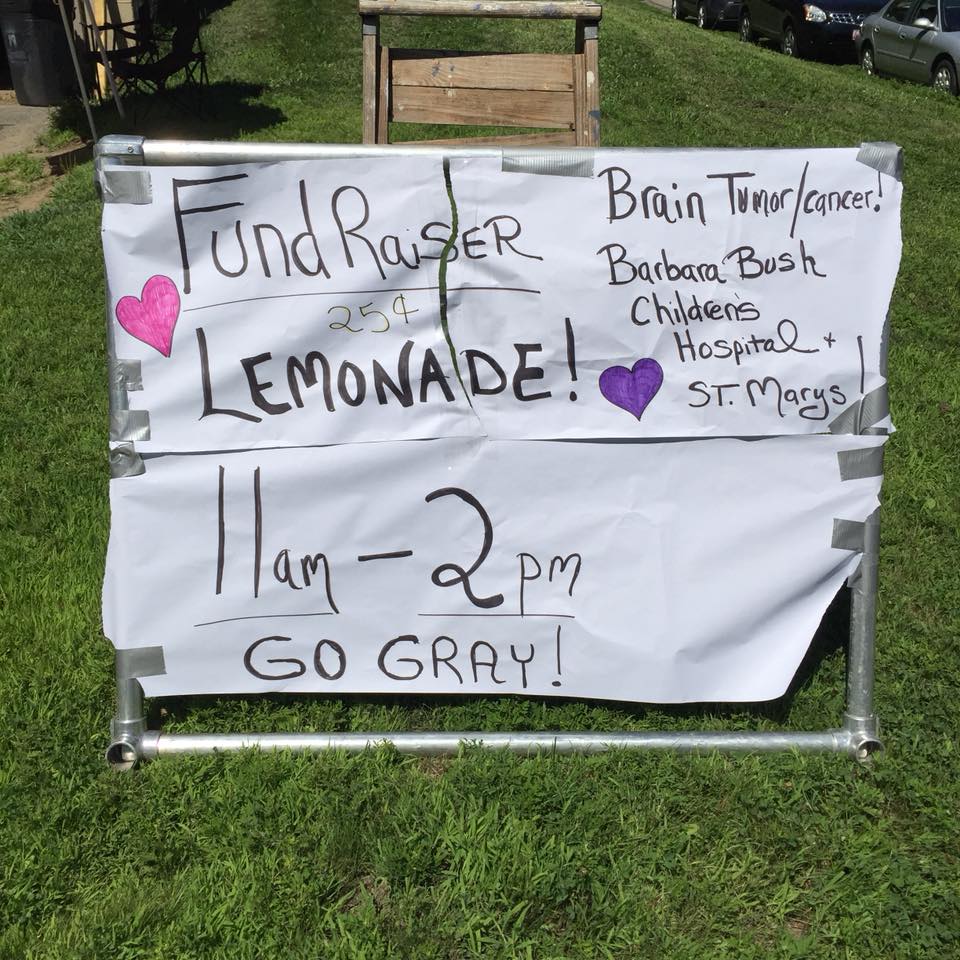 FundRaiSER
25¢
LEMONADE!
Brain Tumor/cancer!
Barbara Bush
Children's
Hospital +
ST. Marys!
11am - 2pm
GO GRAY!